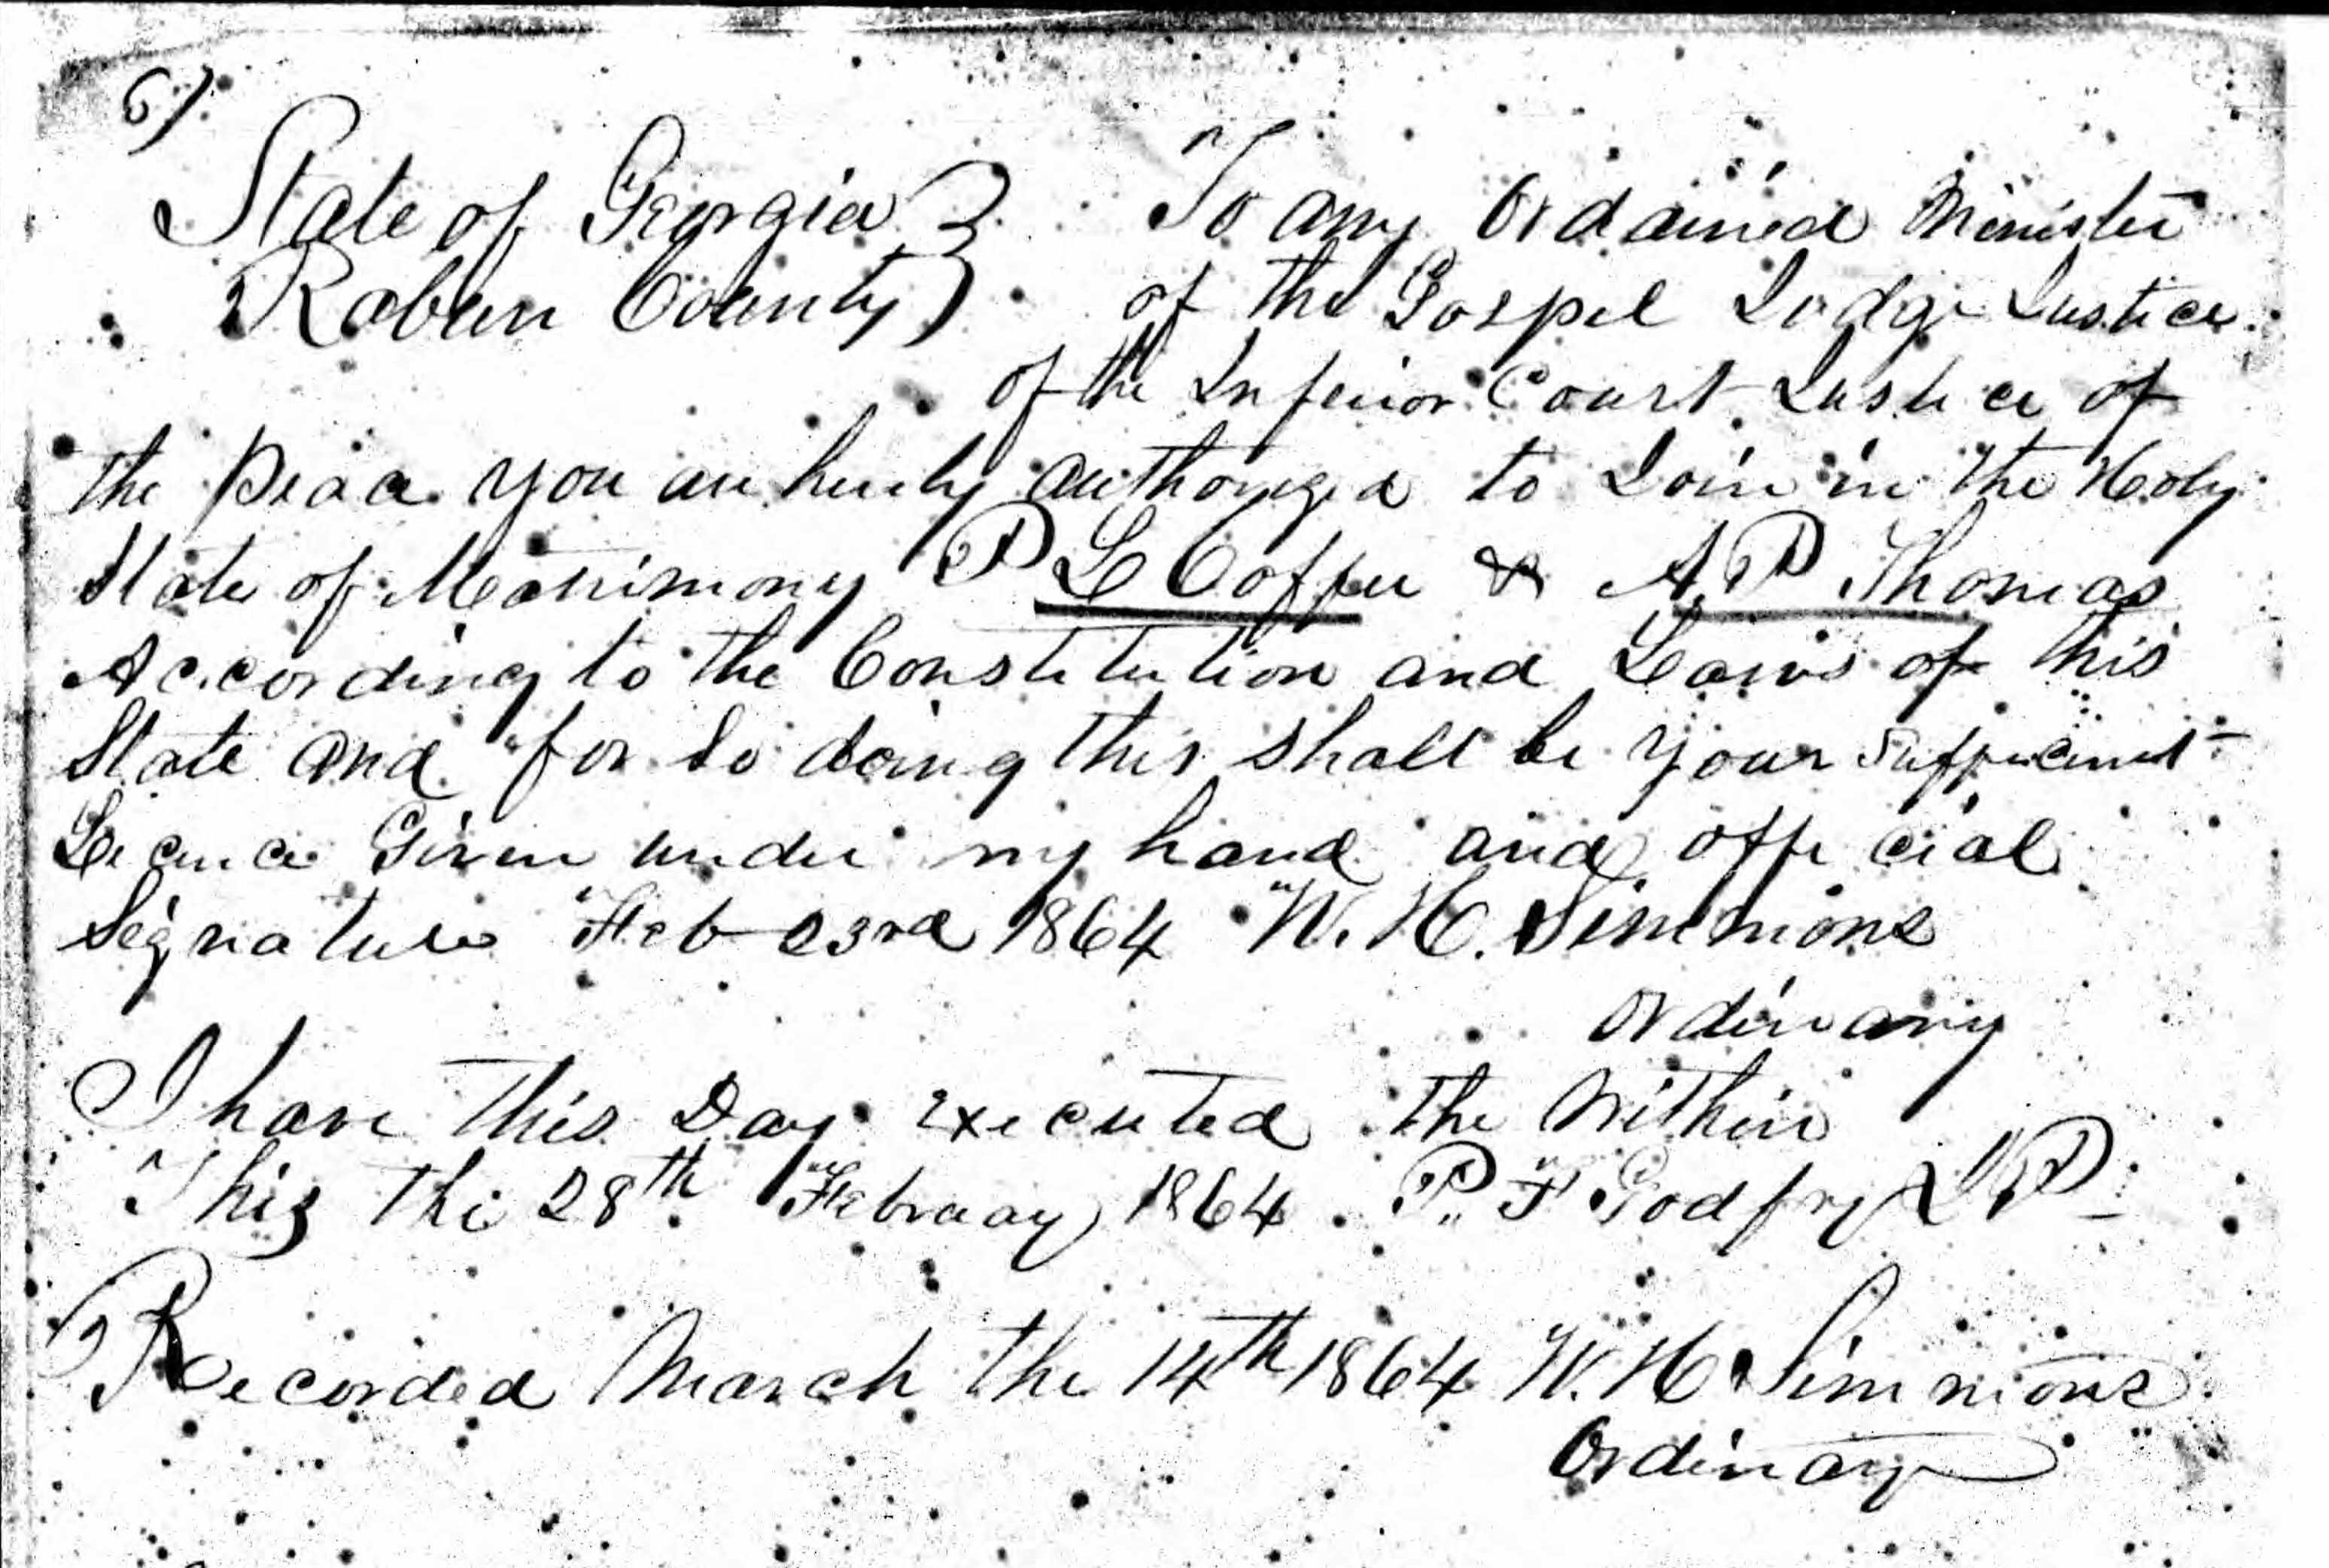 6)
State of Georgia } To any Ordained Minister
Rabun County } of the Gospel Judge Justice
of the Inferior Court Justice of
the peace you are hereby authorized to Join in the Holy
State of Matrimony P L Coffee & A. P Thomas
According to the Constitution and Laws of this
State and for So doing this shall be your Sufficient
Licence Given under my hand and official
Signature Feb 23rd 1864 W. H. Simmons
Ordinary
I have this Day executed the within
This the 28th Febraay 1864. P. F Godfry J P
Recorded March the 14th 1864 W. H Simmons
Ordinary